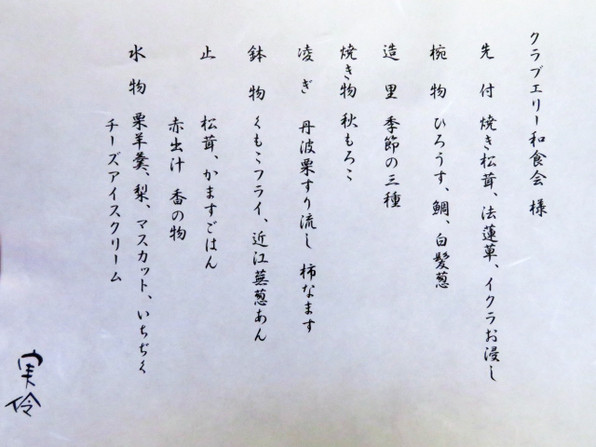 クラブエリー和食会 様
先 付 焼き松茸、法蓮草、イクラお浸し
椀 物 ひろうす、鯛、白髪葱
造 里 季節の三種
焼き物 秋もろこ
凌 ぎ 丹波栗すり流し 柿なます
鉢 物 くもこフライ、近江蕪葱あん
止 松茸、かますごはん
赤出汁 香の物
水 物 栗羊羹、梨、マスカット、いちぢく
チーズアイスクリーム
実伶